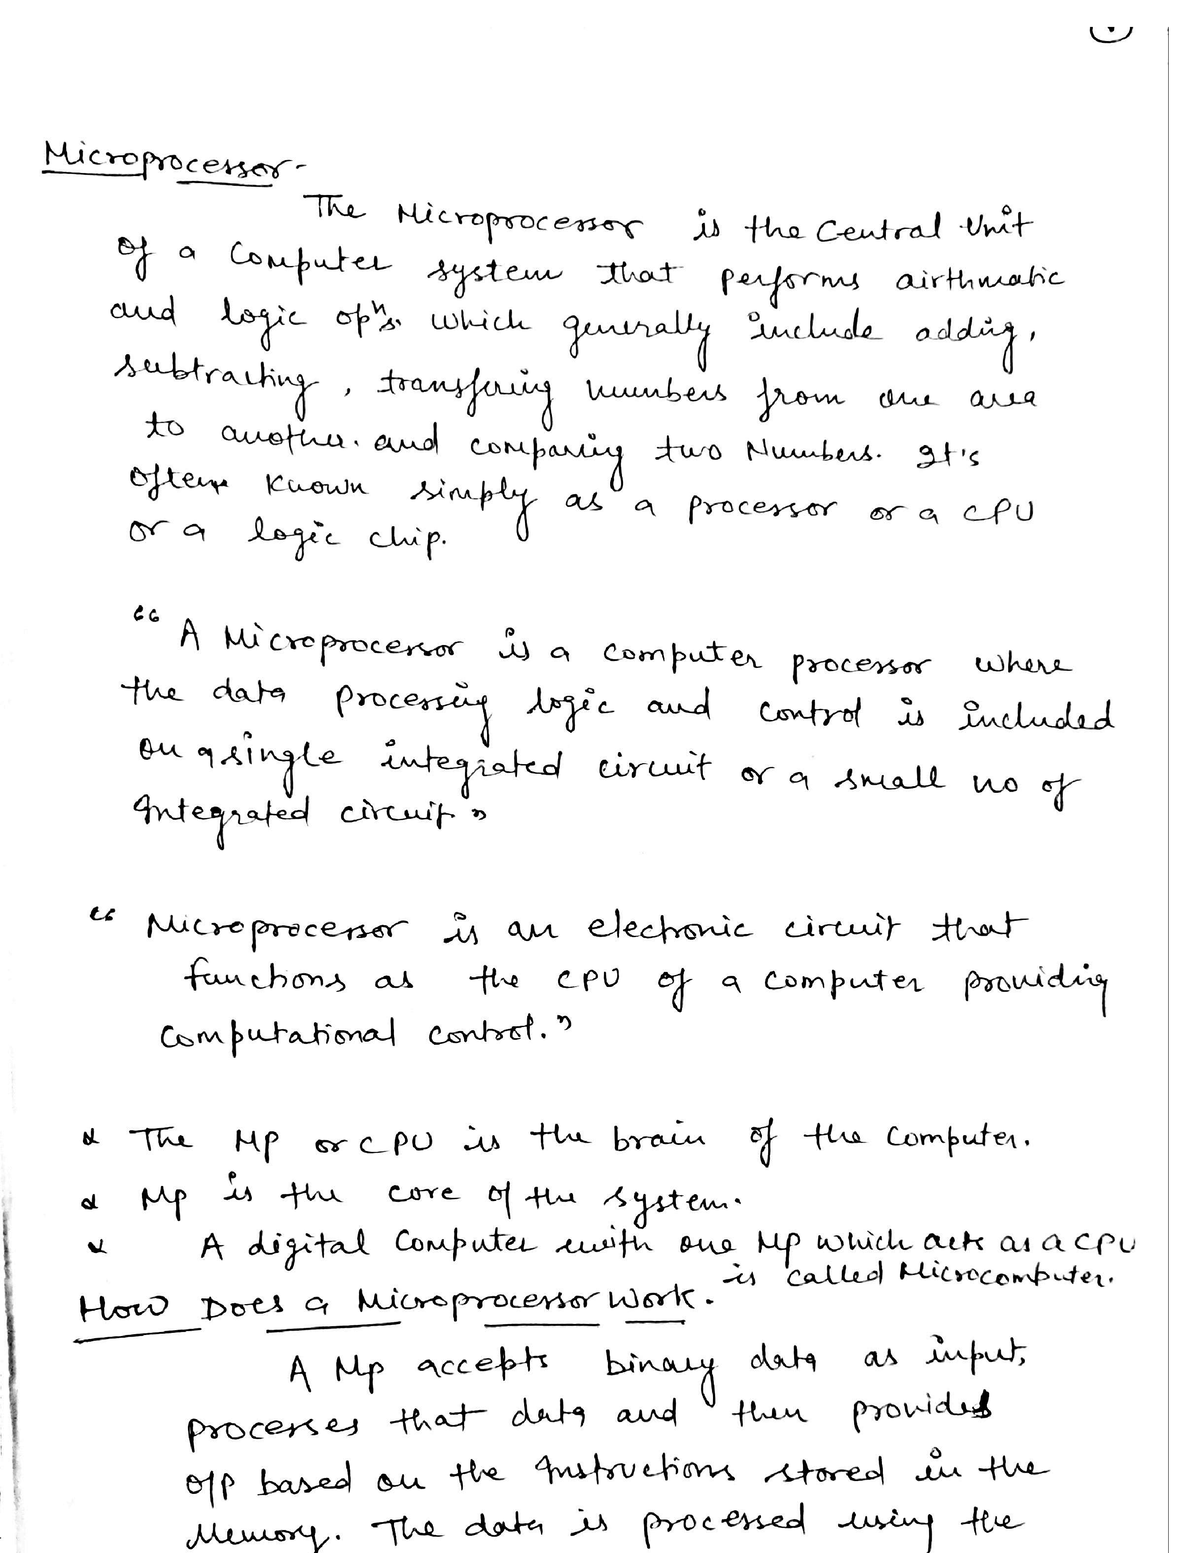 Microprocessor-
The Microprocessor is the Central Unit
of a Computer system that performs airthmatic
and logic opⁿs. which generally include adding,
subtracting, transfering numbers from one area
to another. and comparing two Numbers. It's
often known simply as a processor or a CPU
or a logic chip.
"A Microprocessor is a computer processor where
the data processing logic and control is included
on a single integrated circuit or a small no of
Integrated circuit."
"Microprocessor is an electronic circuit that
functions as the CPU of a computer providing
computational control."
* The MP or CPU is the brain of the computer.
* Mp is the core of the system.
* A digital Computer with one Mp which acts as a CPU
is called Microcomputer.
How Does a Microprocessor Work.
A Mp accepts binary data as input,
processes that data and then provides
O/P based on the Instructions stored in the
Memory. The data is processed using the